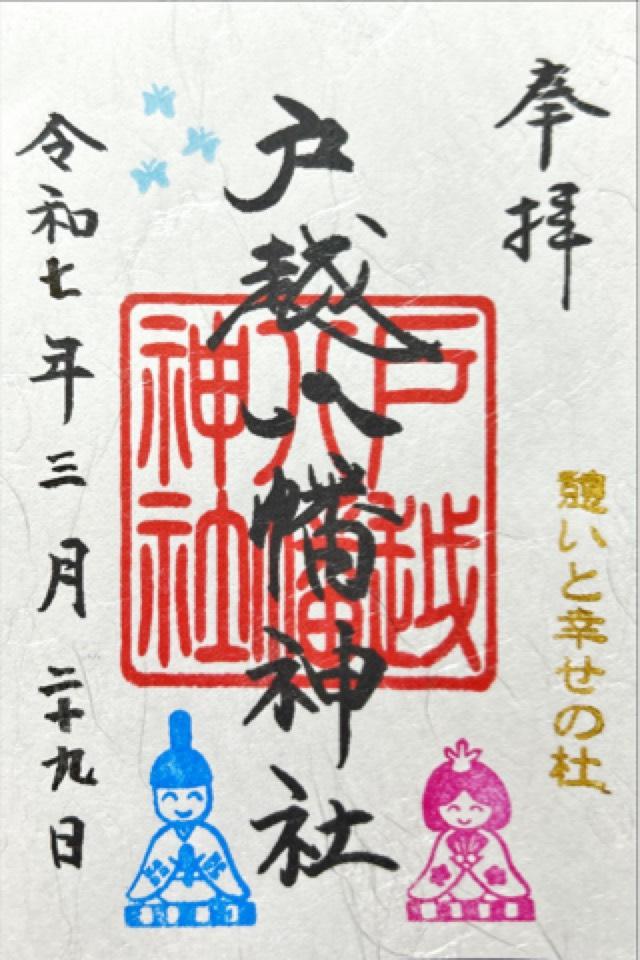 奉拝
憩いと幸せの杜
戸越八幡神社
戸越
八幡
神社
令和七年三月二十九日